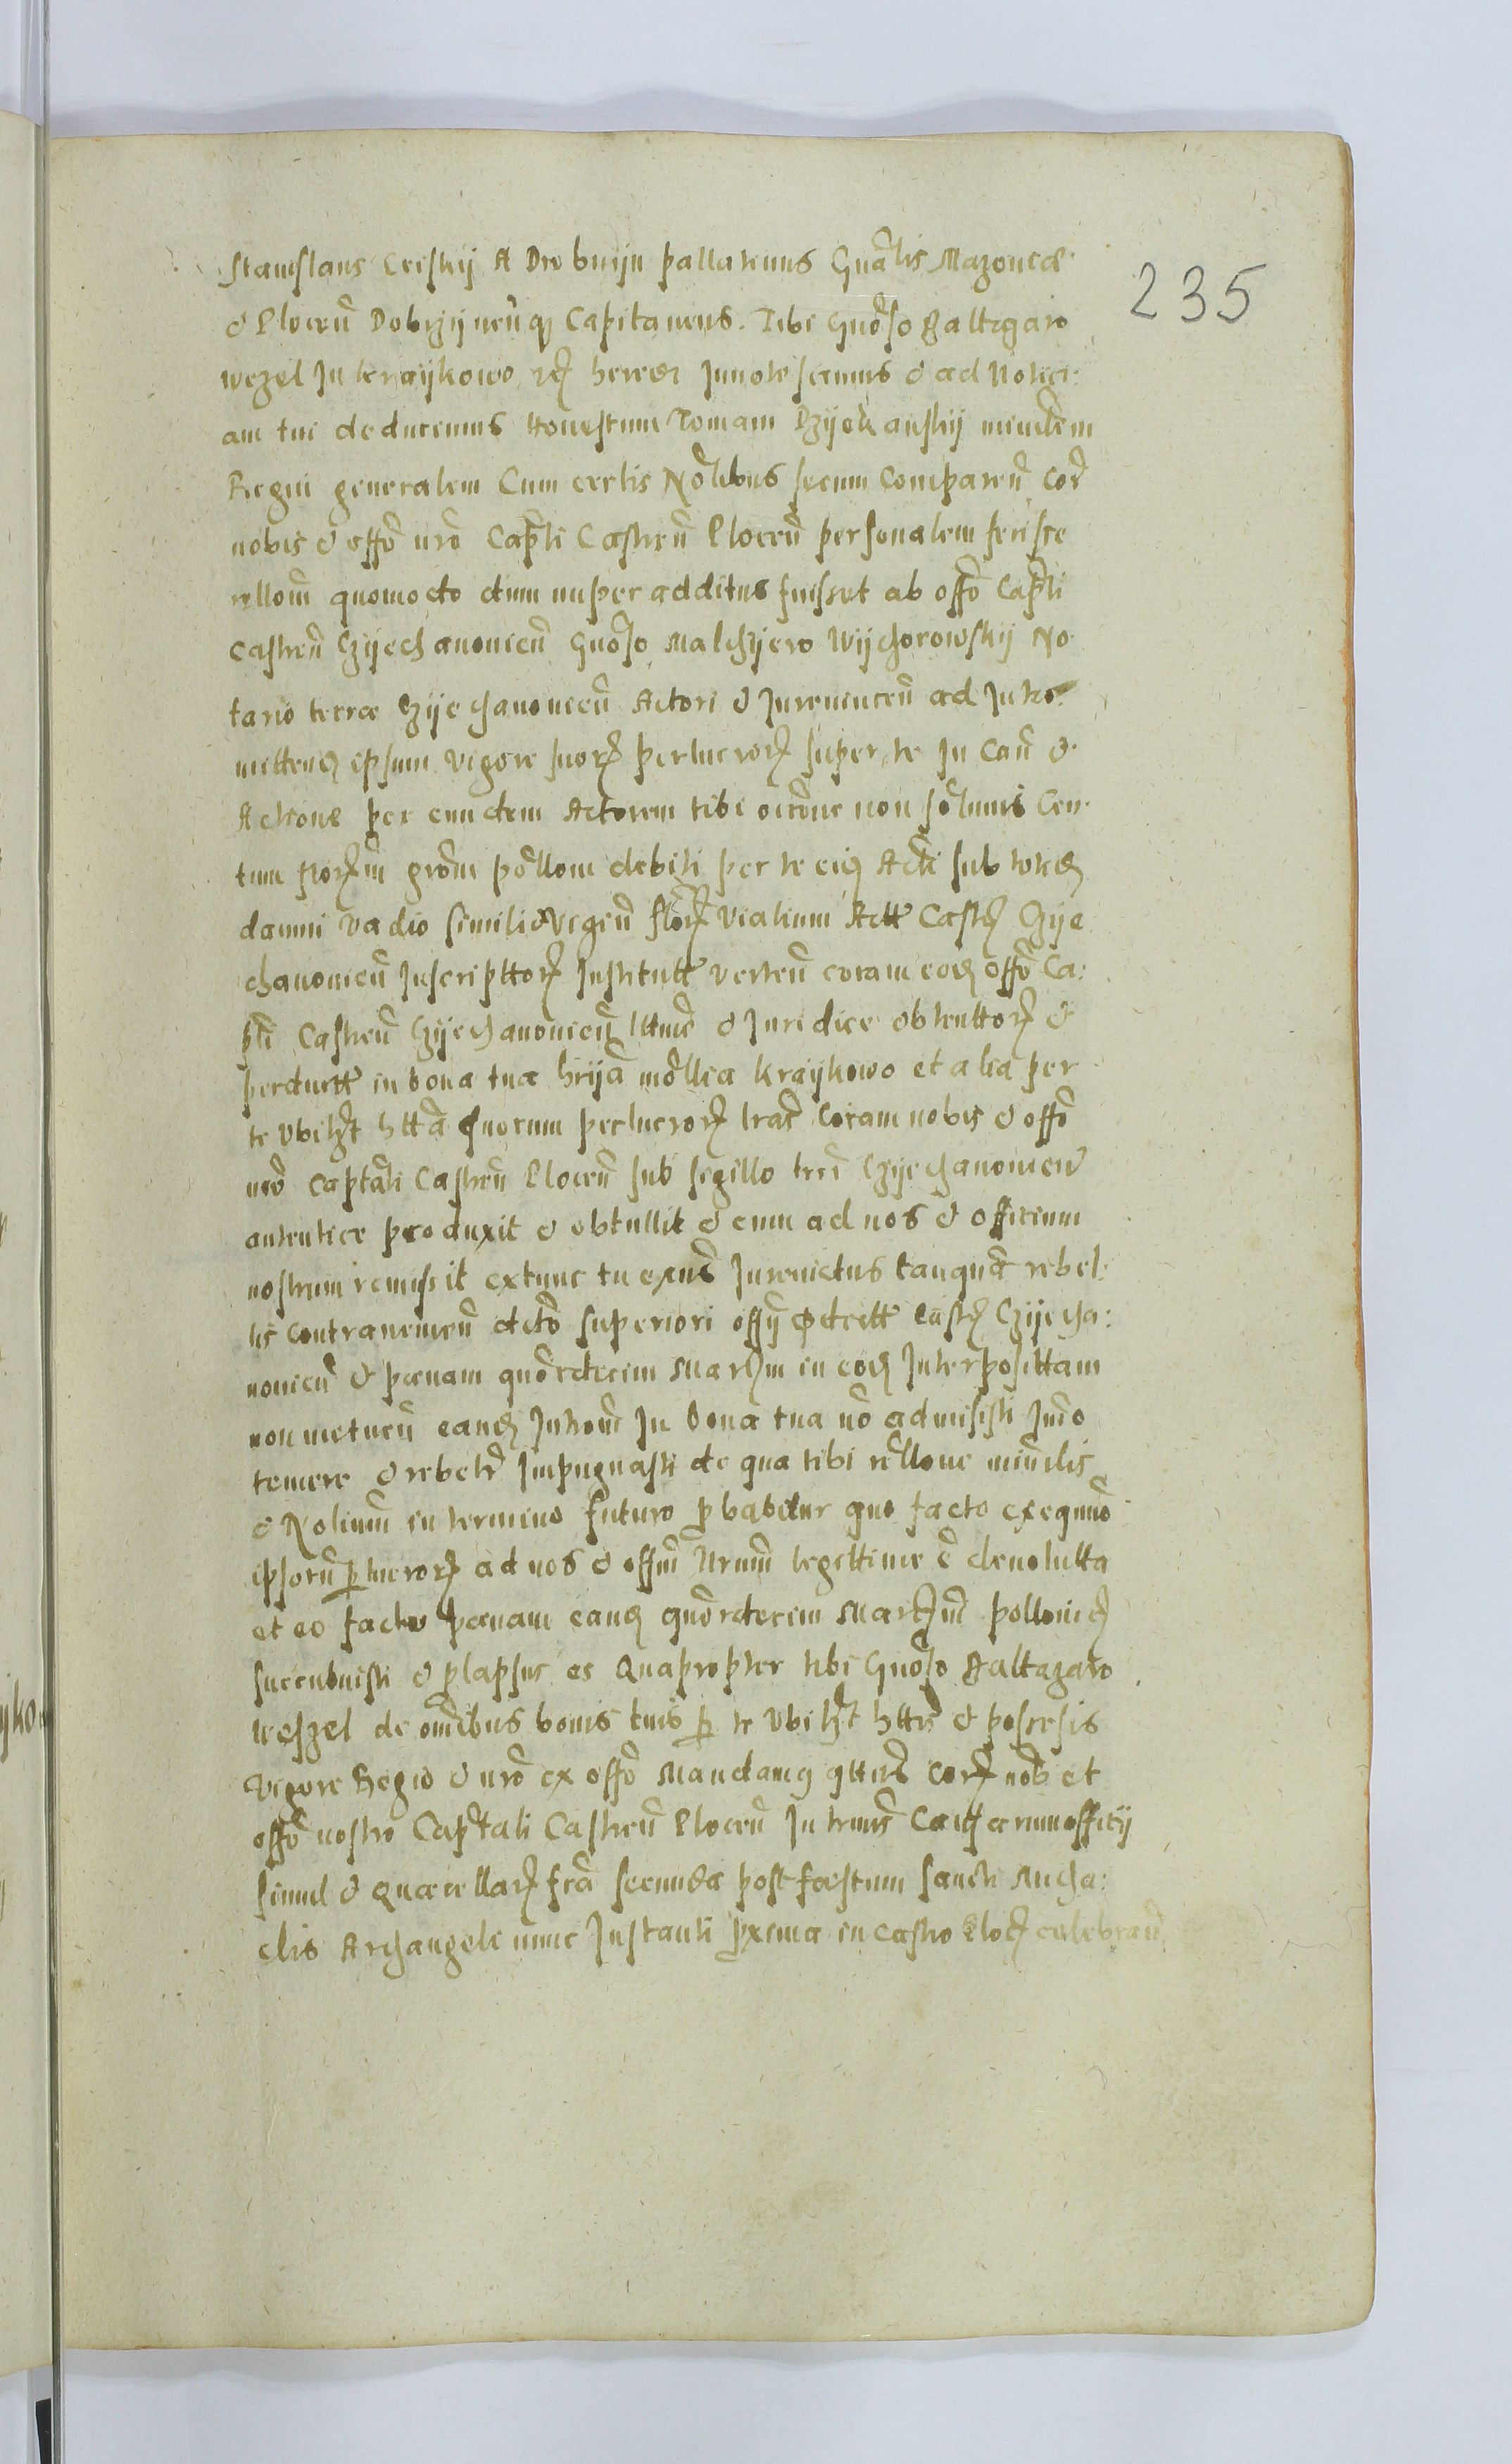 Stanislaus Criskij A Drobnijn pallatinus Gnãlis Mazouiæ
& Plocen̄ Dobrzijnen̄q Capitaneus. Tibi Gnõso Baltazaro
wezel In kraijkowo rz heredi Innotescimus & ad Notici:
am tui deducimus honestum Tomam Czijchanskij minrlem
Regni generalem Cum certis Nõlibus secum Comparen̄ Cor̄
nobis & offõ nrõ Capt̄li Castren̄ Plocen̄ personalem fecisse
rellom̄ quomodo dum nuper additus fuisset ab offõ Capt̄li
castren̄ Czijechanouien̄ Gnõso Malchijero Wijchorowskij No
tario terræ Czijechanouien̄ Actori & Iureuincen̄ ad Intro
mitten̄ ipsum vigore suorz perlucrorz super te In Cau̅ &
Actione per eundem Actorem tibi oiõne non sõlunis Cen
tum florzm grõm põllom debiti per te eid Act̄i sub totid
damni vadio simili & vigen̄ florz vialium Actt Castr Czije
chanouien̄ Inscripttorz Institutt verten̄ coram eod offõ Ca:
pt̄li Castren̄ Czijechanouien̄ lttime & Iuridice obtenttorz &
perductt in bona tua hrijã mõllia kraijkowo et alia per
te vbilzt httã Quorum perlucrorz lras̄ Coram nobis & offõ
nrõ Captãli Castren̄ Plocen̄ sub sigillo trri Czijechanouien̄
autentice produxit & obtullit & eum ad nos & officium
nostrum remissit extunc tu exn̄s Iureuictus tanquã rebel
lis Contraueniẽn dcto superiori offij Pdcctt Castr Czijecha:
nouien̄ & pænam quõrdecim Marcm in eod Interposittam
non metuen̄ eand Introm̄ In bona tua nõ admisisti Imo
temere & rebelr Impugnasti de qua tibi rellone minrlis
& Nolium̄ in termino futuro pbabitur quo facto exequuõ
ipsorū plucrorz ad nos & offm̄ Nrum̄ legittime ẽ deuolutta
et eo facto pænam eand quõrdecim Marcm̄ pollonic
succubuisti & plapsus es Quapropter tibi Gnõso Baltazaro
weszel de om̄ibus bonis tuis p te vbilzt httis & possesis
vigore Regio & nrõ ex offõ Mandamq qttns Corz nob et
offõ nostro Captãli Castren̄ Plocen̄ In trmis Causarum officij
simul & Quærellarz frã secunda post fæstum sancti Micha:
elis Archangeli nunc Instanti pxima in castro Ploc celebran̄
235